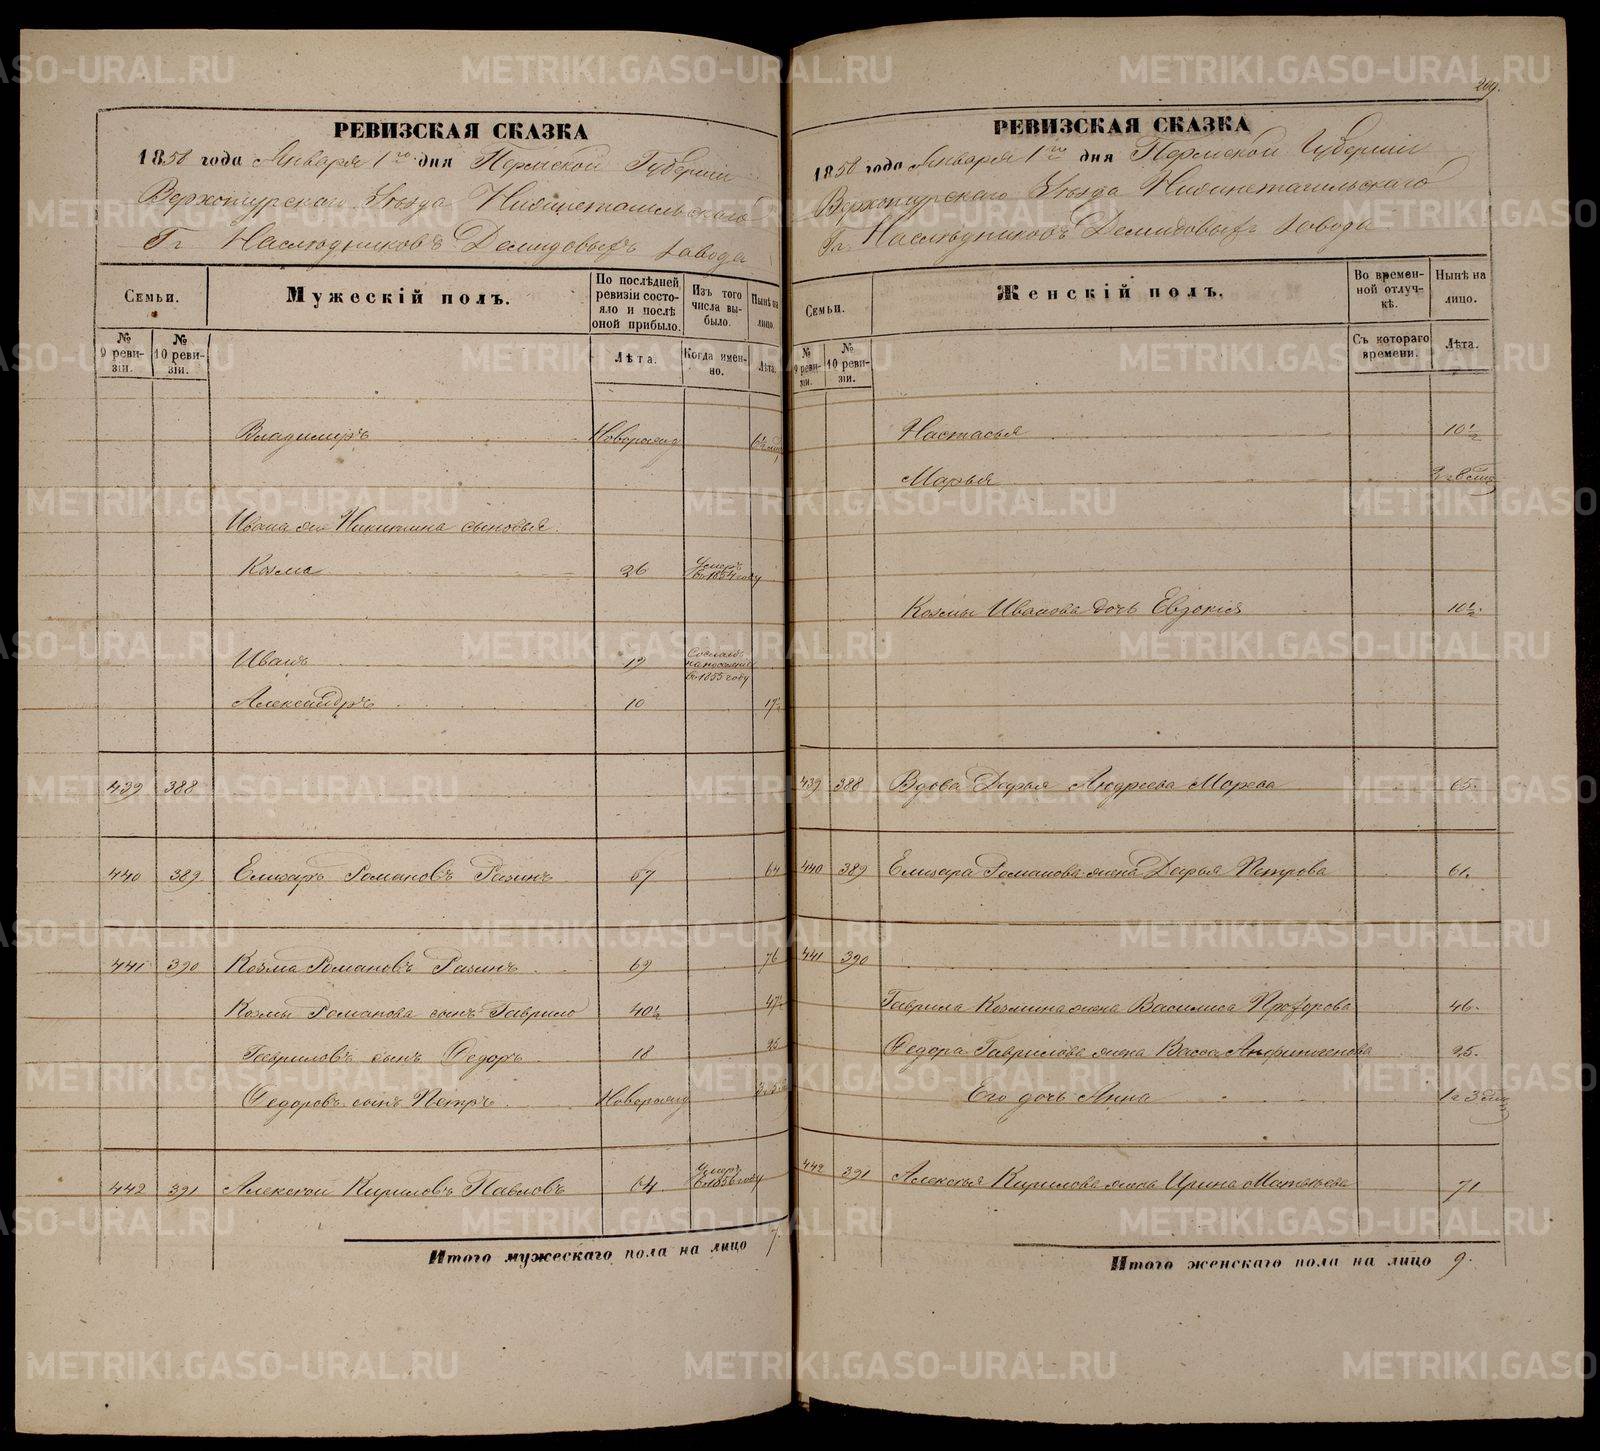 209.
РЕВИЗСКАЯ СКАЗКА
1858 года Января 1го дня Пермской Губерніи
Верхотурскаго Уѣзда Нижнетагильскаго
Гг. Наслѣдниковъ Демидовыхъ завода
Семьи.
Мужескій полъ.
По послѣдней ревизіи состояло и послѣ оной прибыло.
Изъ того числа выбыло.
Нынѣ на лицо.
№ 9 ревизіи.
№ 10 ревизіи.
Лѣта.
Когда именно.
Лѣта.
Владимиръ Новорожд
Ивана Никитина сыновья
Козма 26 Умеръ въ 1854 году
Иванъ 19 Сосланъ на поселеніе въ 1855 году
Александръ 10 17½
439 388
440 389 Елизаръ Романовъ Разинъ 57 64
441 390 Козма Романовъ Разинъ 69 76
Козмы Романова сынъ Гаврило 40½ 47½
Гавриловъ сынъ Федоръ 18 25
Федоровъ сынъ Петръ Новорожд
442 391 Алексѣй Кириловъ Павловъ 64 Умеръ въ 1856 году
Итого мужескаго пола на лицо 7.
РЕВИЗСКАЯ СКАЗКА
1858 года Января 1го дня Пермской Губерніи
Верхотурскаго Уѣзда Нижнетагильскаго
Гг. Наслѣдниковъ Демидовыхъ завода
Семьи.
Женскій полъ.
Во временной отлучкѣ.
Нынѣ на лицо.
№ 9 ревизіи.
№ 10 ревизіи.
Съ котораго времени.
Лѣта.
Настасья 10½
Марья
Козмы Иванова дочь Евдокия 10½
439 388 Вдова Дарья Андреева Морева 65
440 389 Елизара Романова жена Дарья Петрова 61.
441 390
Гаврила Козмина жена Василиса Прохорова 46.
Федора Гаврилова жена Васса Анфиногенова 25.
Его дочь Анна
442 391 Алексѣя Кирилова жена Ирина Матвѣева 71
Итого женскаго пола на лицо 9.
METRIKI.GASO-URAL.RU